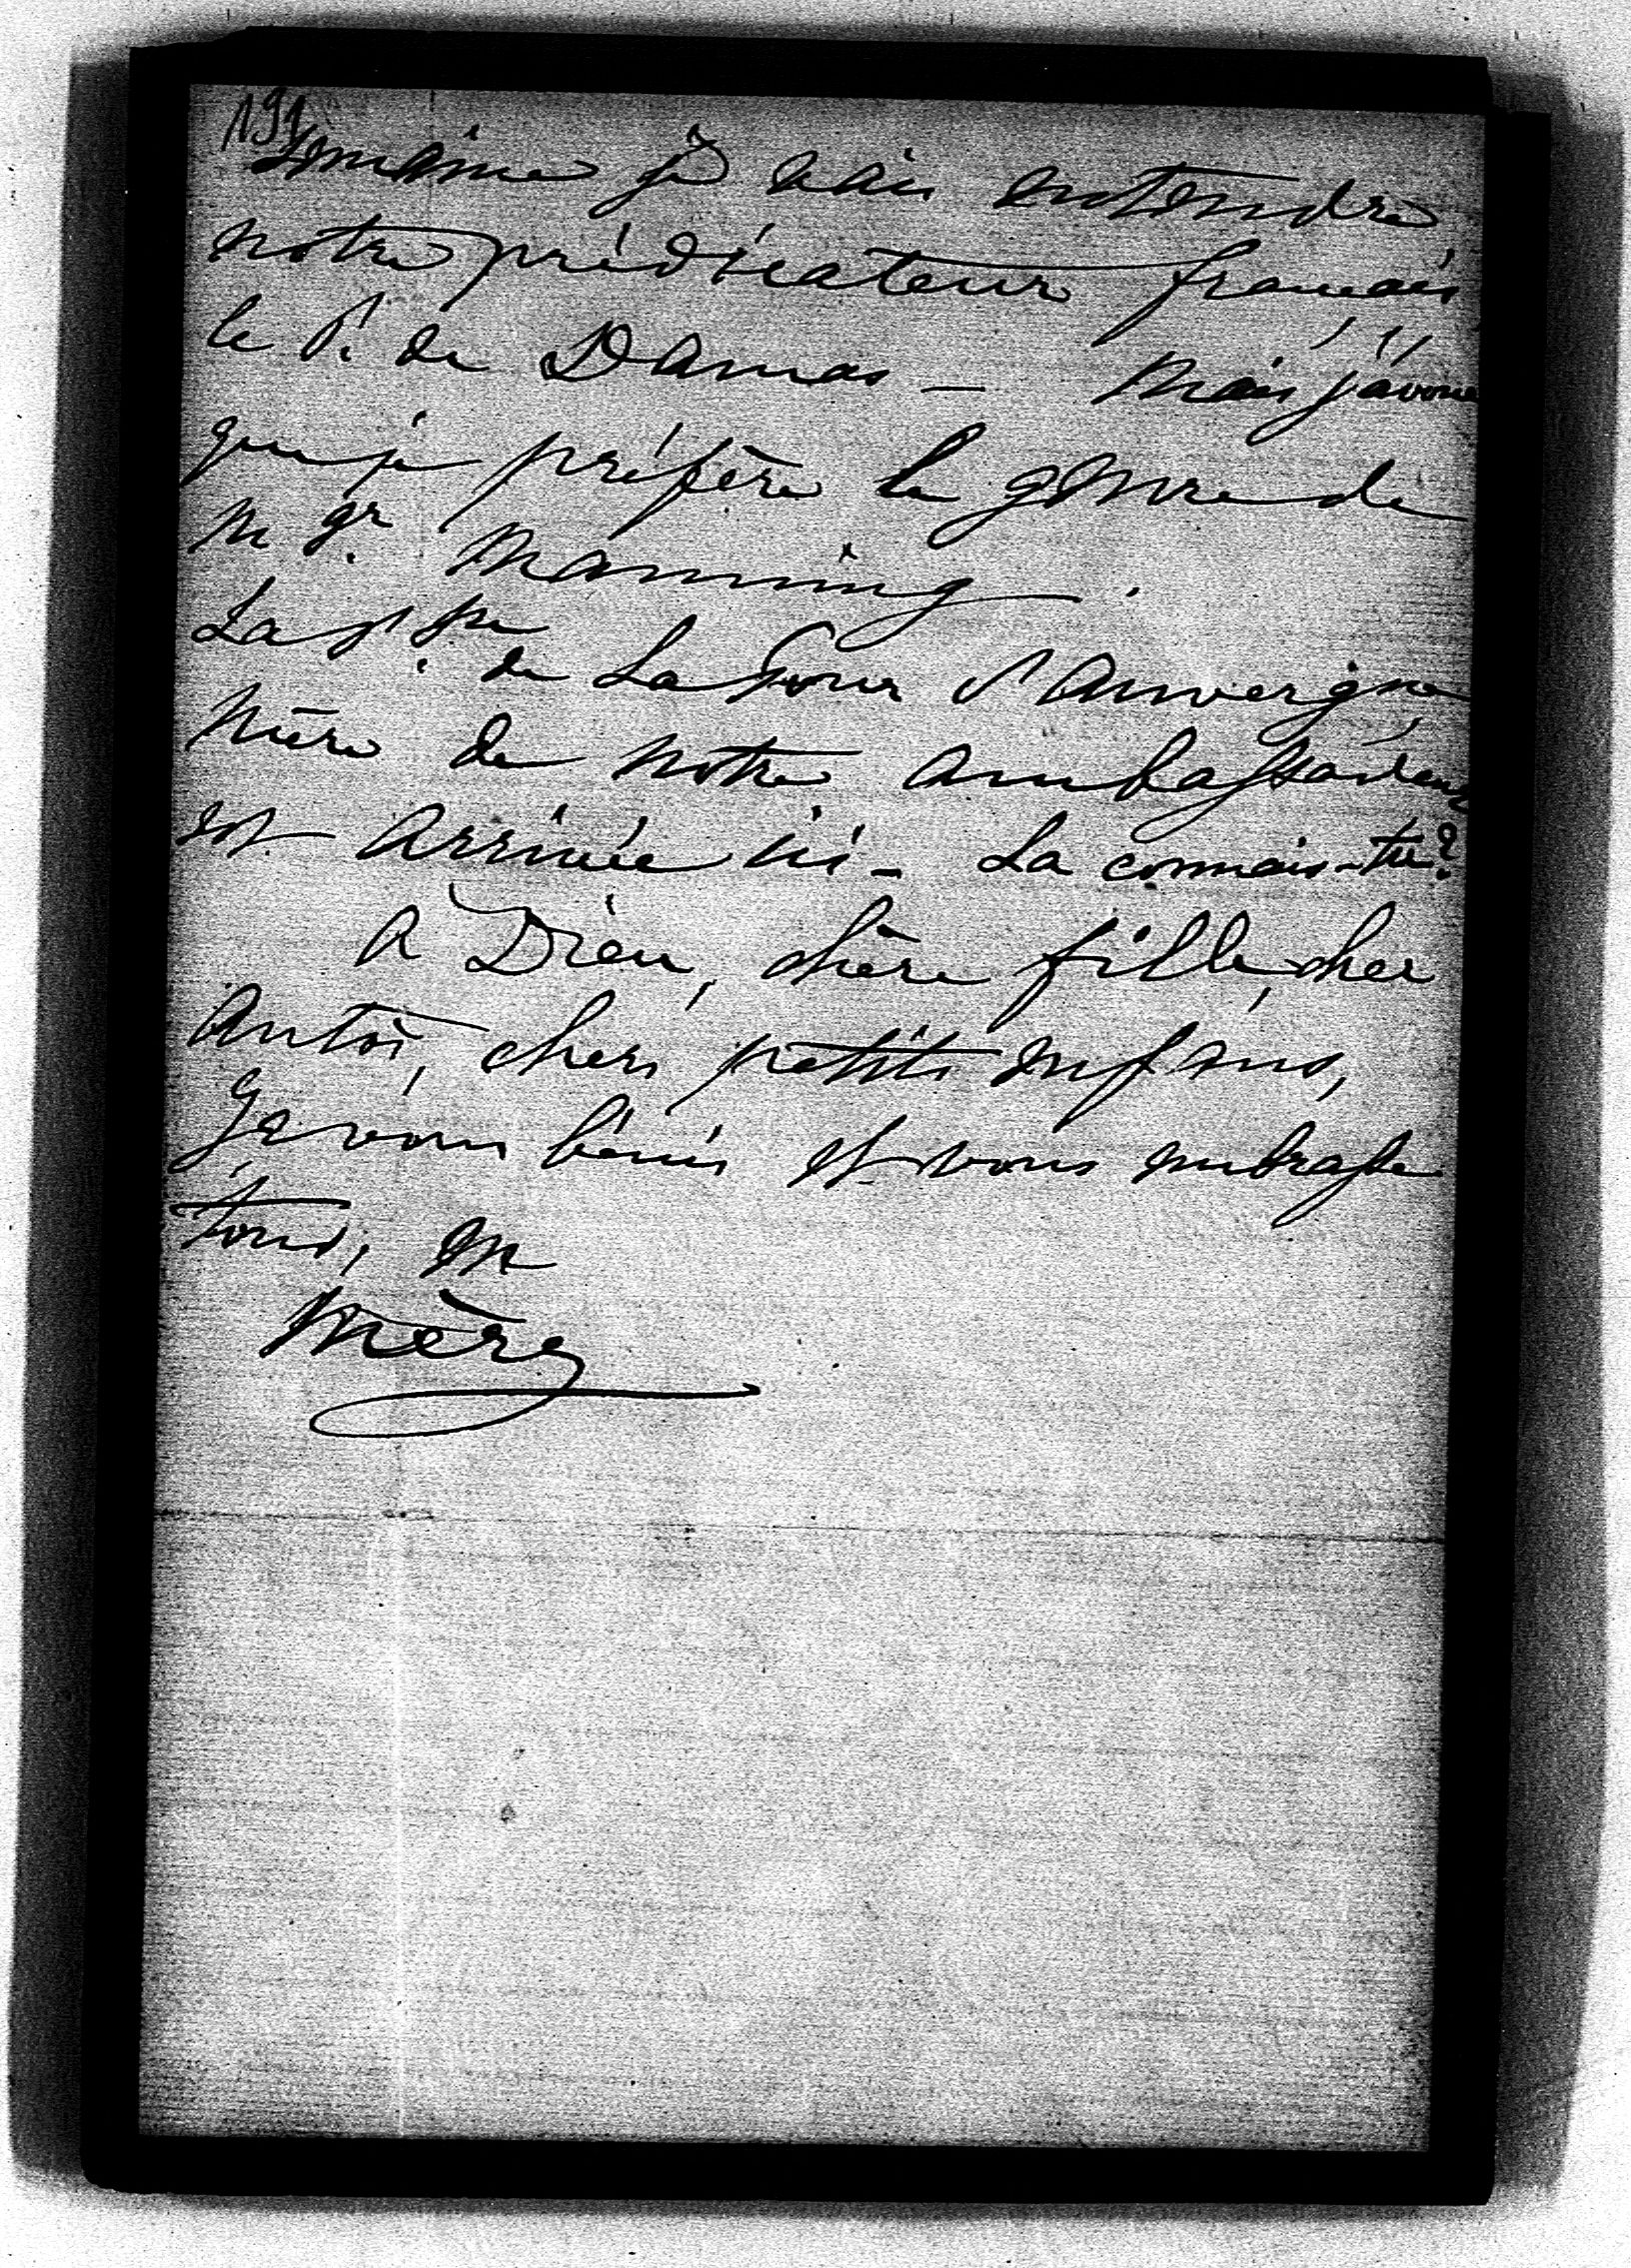 191
semaine je vais entendre
notre prédicateur français
le P. de Damas — Mais j'avoue
que je préfère le genre de
Mgr. Manning.
La Psse. de La Tour d'Auvergne
mère de notre ambassadeur
est arrivée ici - La connais-tu?
A Dieu, chère fille, cher
Antoi, chers petits enfans,
Je vous bénis et vous embrasse
tous, M
Mère